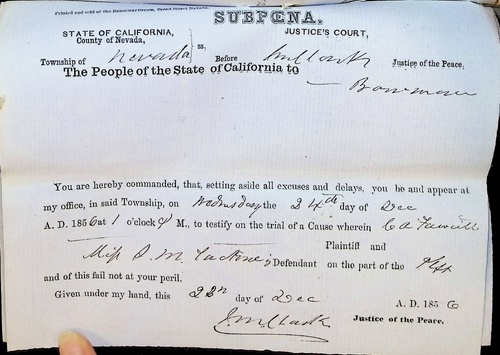 Printed and sold at the Democrat Office, Broad Street Nevada.
SUBPŒNA.
STATE OF CALIFORNIA, JUSTICE'S COURT,
County of Nevada, ss.
Township of Nevada Before Justice of the Peace.
The People of the State of California to
— Bowman
You are hereby commanded, that, setting aside all excuses and delays, you be and appear at
my office, in said Township, on Wednesday the 24th day of Dec
A. D. 1856 at 1 o'clock M., to testify on the trial of a Cause wherein
Plaintiff and
Miss Defendant on the part of the Plff
and of this fail not at your peril.
Given under my hand, this 22n day of Dec A. D. 1856
Justice of the Peace.